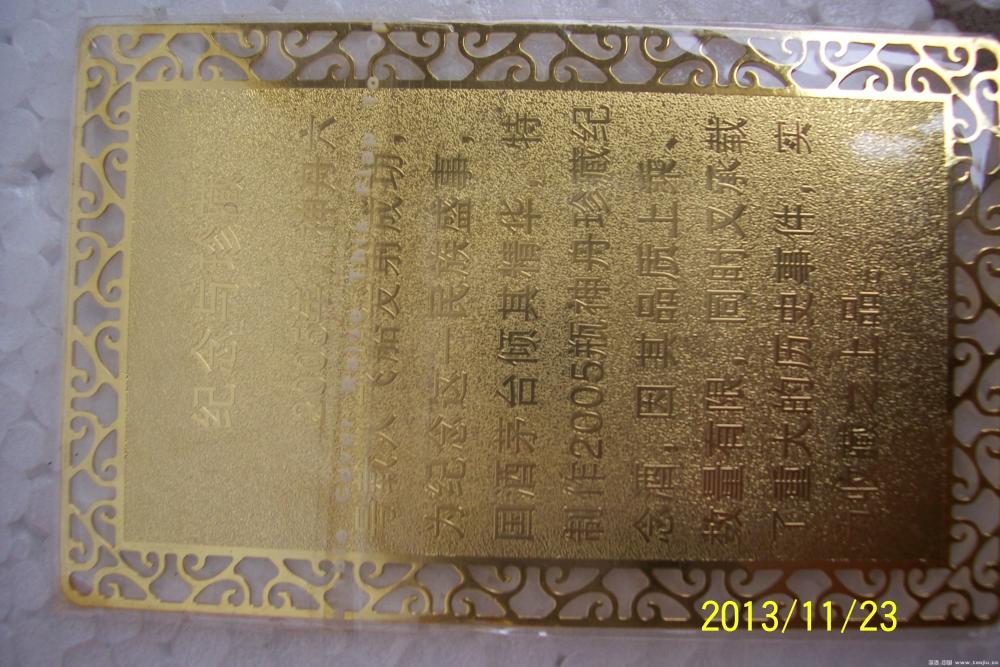 纪念与珍藏
2005年,神舟六
号载人飞船发射成功,
为纪念这一民族盛事,
国酒茅台倾其精华,特
制作2005瓶神舟珍藏纪
念酒,因其品质上乘、
数量有限,同时又承载
了重大的历史事件,实
收藏之上品。
2013/11/23